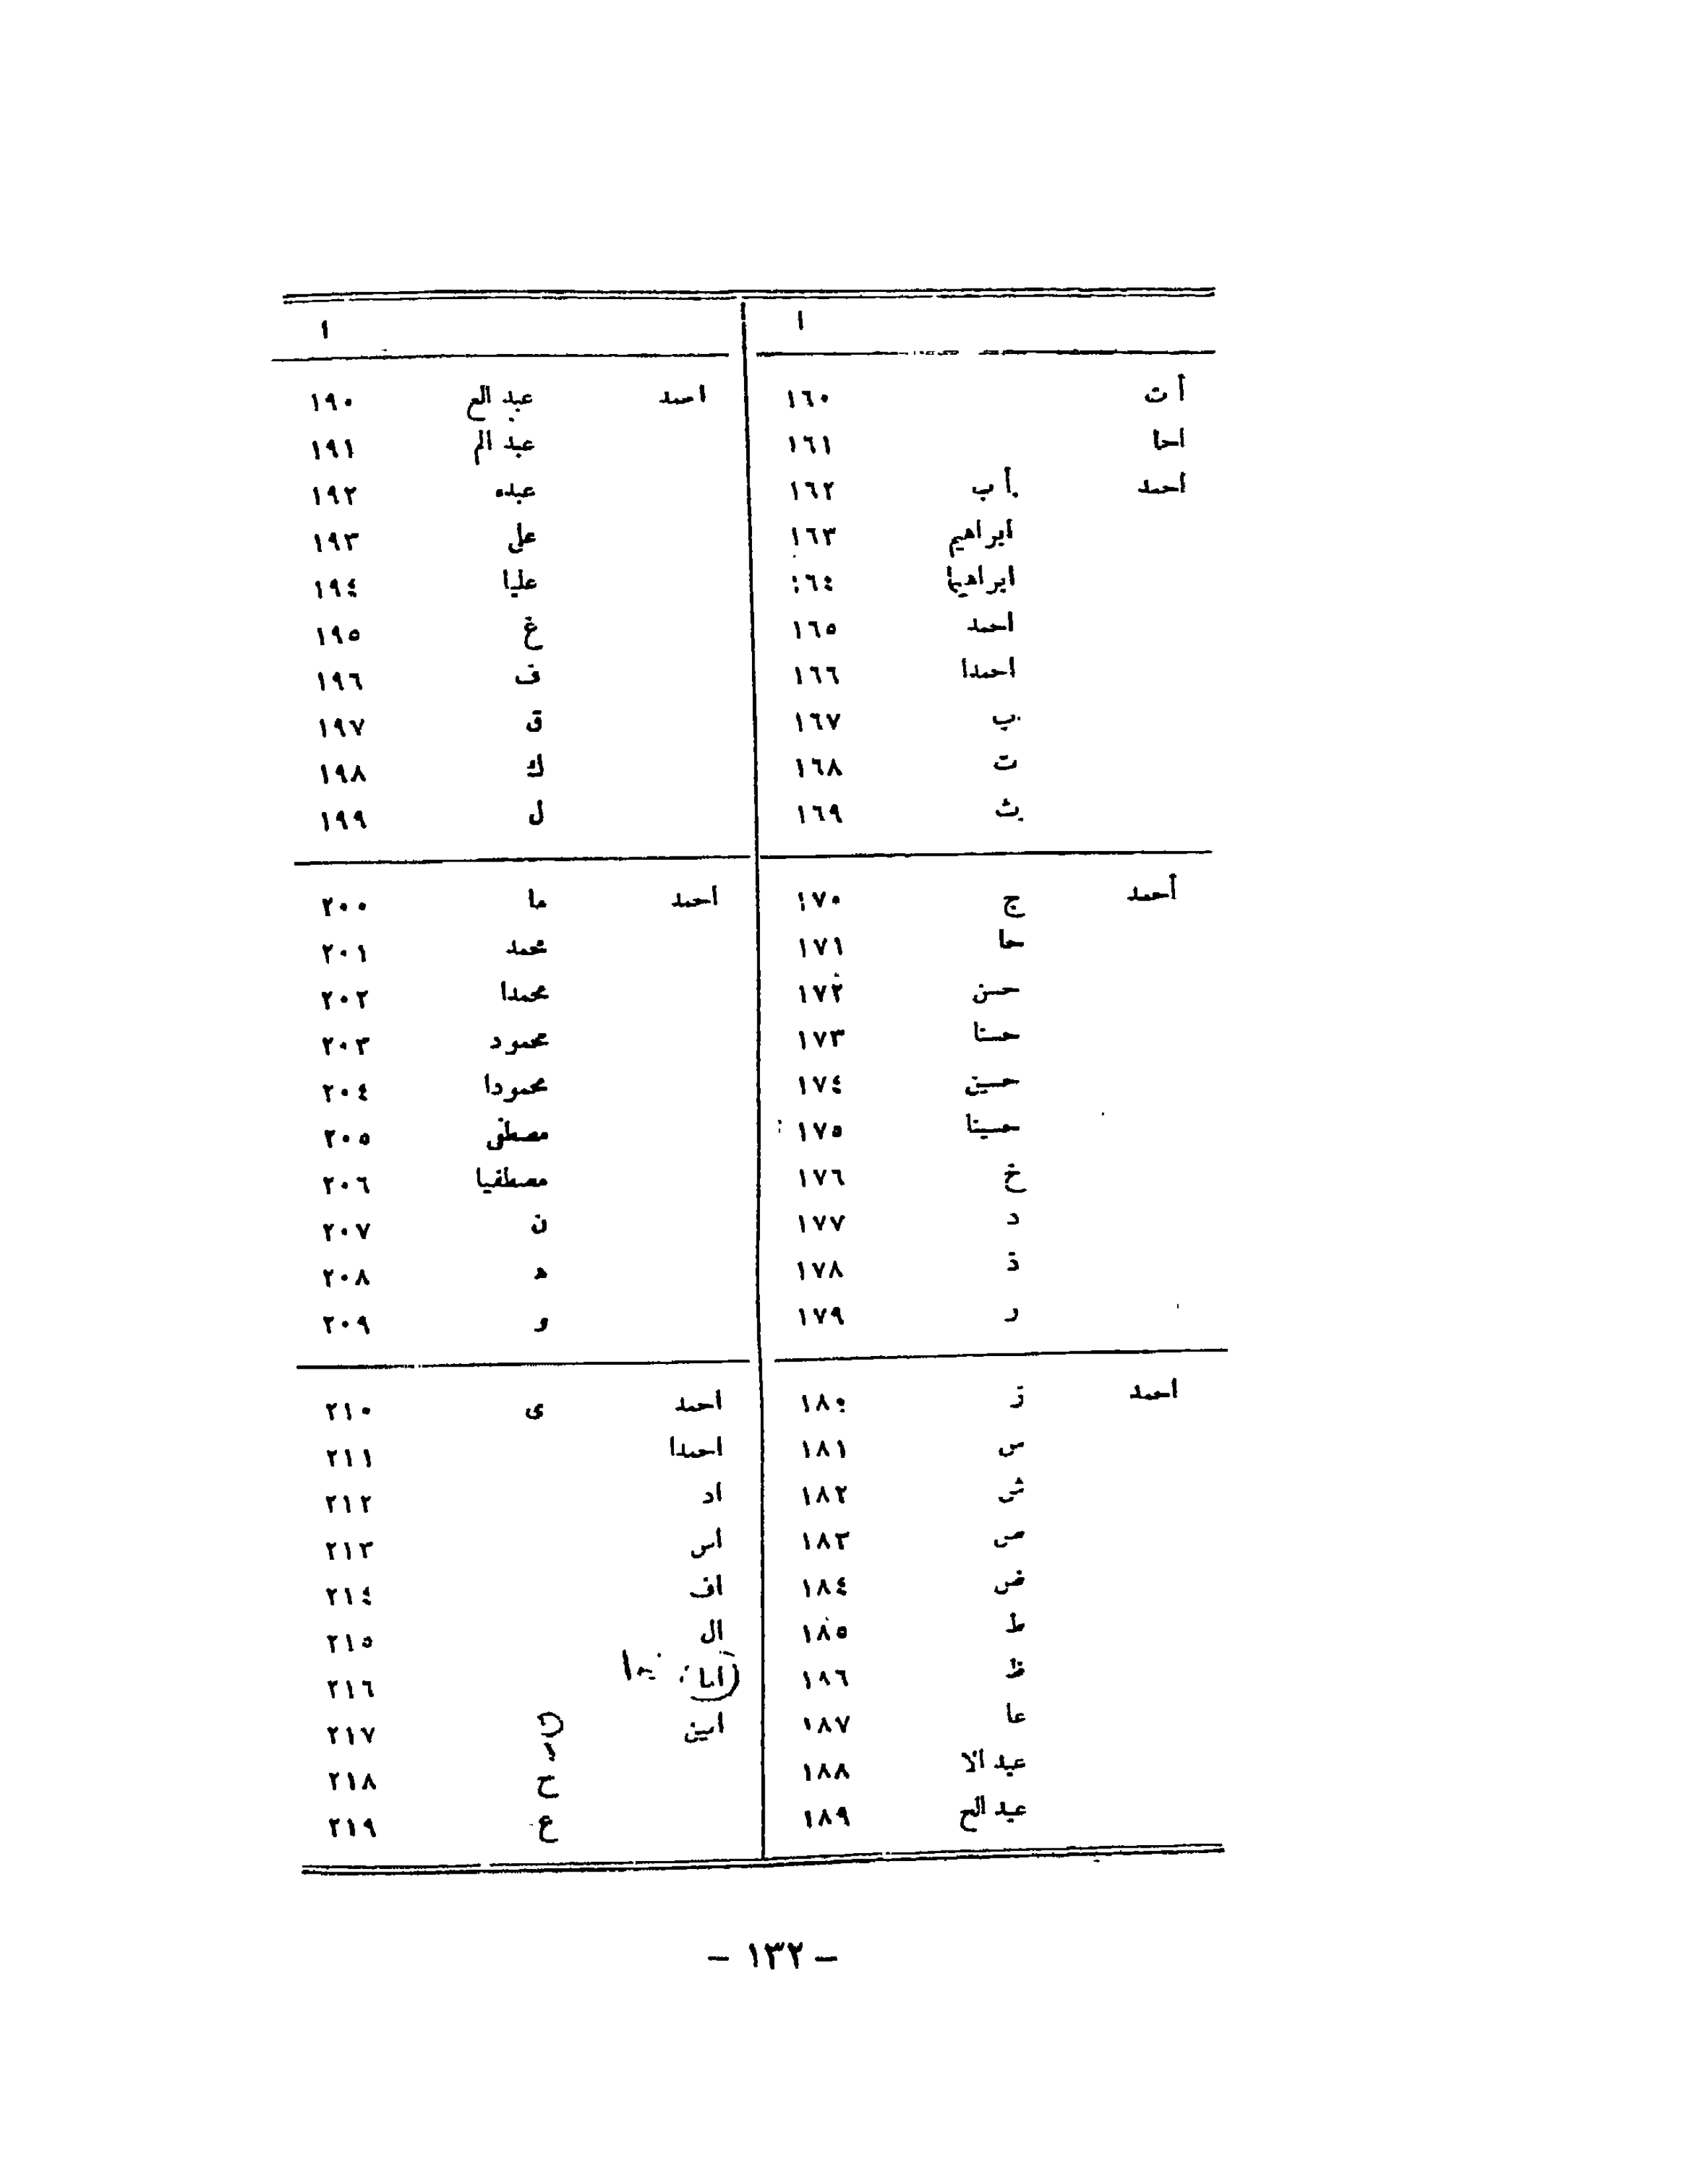 ا
أ ت ١٦٠
احا ١٦١
احمد أ ب ١٦٢
ابراهيم ١٦٣
ابراهيما ١٦٤
احمد ١٦٥
احمدا ١٦٦
ب ١٦٧
ت ١٦٨
ث ١٦٩
أحمد ج ١٧٠
حا ١٧١
حسن ١٧٢
حسنا ١٧٣
حسين ١٧٤
حسينا ١٧٥
خ ١٧٦
د ١٧٧
ذ ١٧٨
ر ١٧٩
احمد ز ١٨٠
س ١٨١
ش ١٨٢
ص ١٨٣
ض ١٨٤
ط ١٨٥
ظ ١٨٦
عا ١٨٧
عبد الا ١٨٨
عبد الح ١٨٩
ا
احمد عبد الع ١٩٠
عبد الم ١٩١
عبده ١٩٢
على ١٩٣
عليا ١٩٤
غ ١٩٥
ف ١٩٦
ق ١٩٧
ك ١٩٨
ل ١٩٩
احمد ما ٢٠٠
محمد ٢٠١
محمدا ٢٠٢
محمود ٢٠٣
محمودا ٢٠٤
مصطفى ٢٠٥
مصطفيا ٢٠٦
ن ٢٠٧
ه ٢٠٨
و ٢٠٩
احمد ى ٢١٠
احمدا ٢١١
اد ٢١٢
اس ٢١٣
اف ٢١٤
ال ٢١٥
اما ٢١٦
امين ٢١٧
ح ٢١٨
ع ٢١٩
– ١٣٢ –